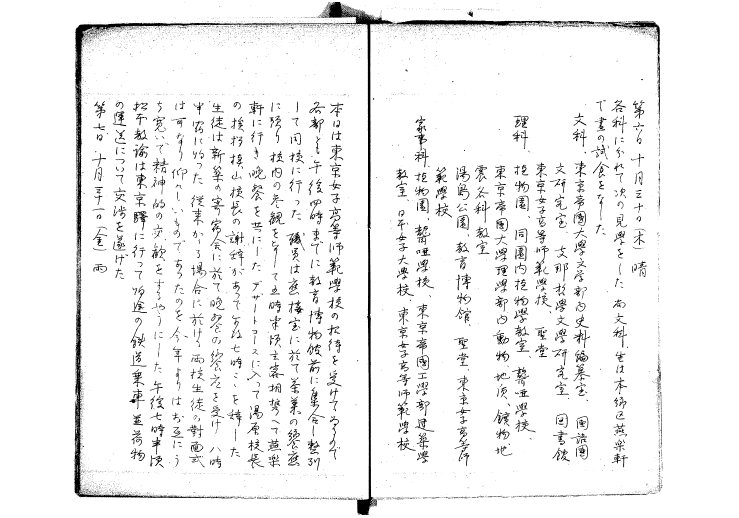 第六日 十月三十日（木） 晴
各科に分れて次の見學をした 尚文科生は本郷区燕樂軒
で晝の試食をなした
文科、東京帝國大學文学部内史料編纂室 國語國
文研究室 支那哲學文學研究室 図書館
東京女子高等師範學校、聖堂
理科、植物園 同園内植物學教室、聾唖學校、
東京帝国大學理學部内動物地質、鑛物地
震各科教室
湯島公園、教育博物館 聖堂、東京女子高等師
範學校
家事科 植物園、聾唖學校、東京帝國工學部建築學
教室、日本女子大學校 東京女子高等師範學校
本日は東京女子高等師範學校の招待を受けてゐるので
各部とも午後四時までに教育博物館前に集合し整列
して同校に行った 職員は應接室に於て茶菓の饗應
に預り校内の参観をなして五時半頃主客相携へて燕樂
軒に行き晩餐を共にした デザートコースに入って湯原校長
の挨拶 槇山校長の謝辞があって午後七時こゝを辞した
生徒は新築の寄宿舍に於て晩餐の饗應を受け 八時
宿に帰った 従来かゝる場合に於ける両校生徒の對面式
は可なり仰々しいものであったのを今年よりはお互にう
ち寛いで精神的の交歓をするやうにした 午後七時半頃
松本教諭は東京驛に行って帰途の鉄道乗車並荷物
の運送について交渉を遂げた
第七日 十月三十一日（金） 雨